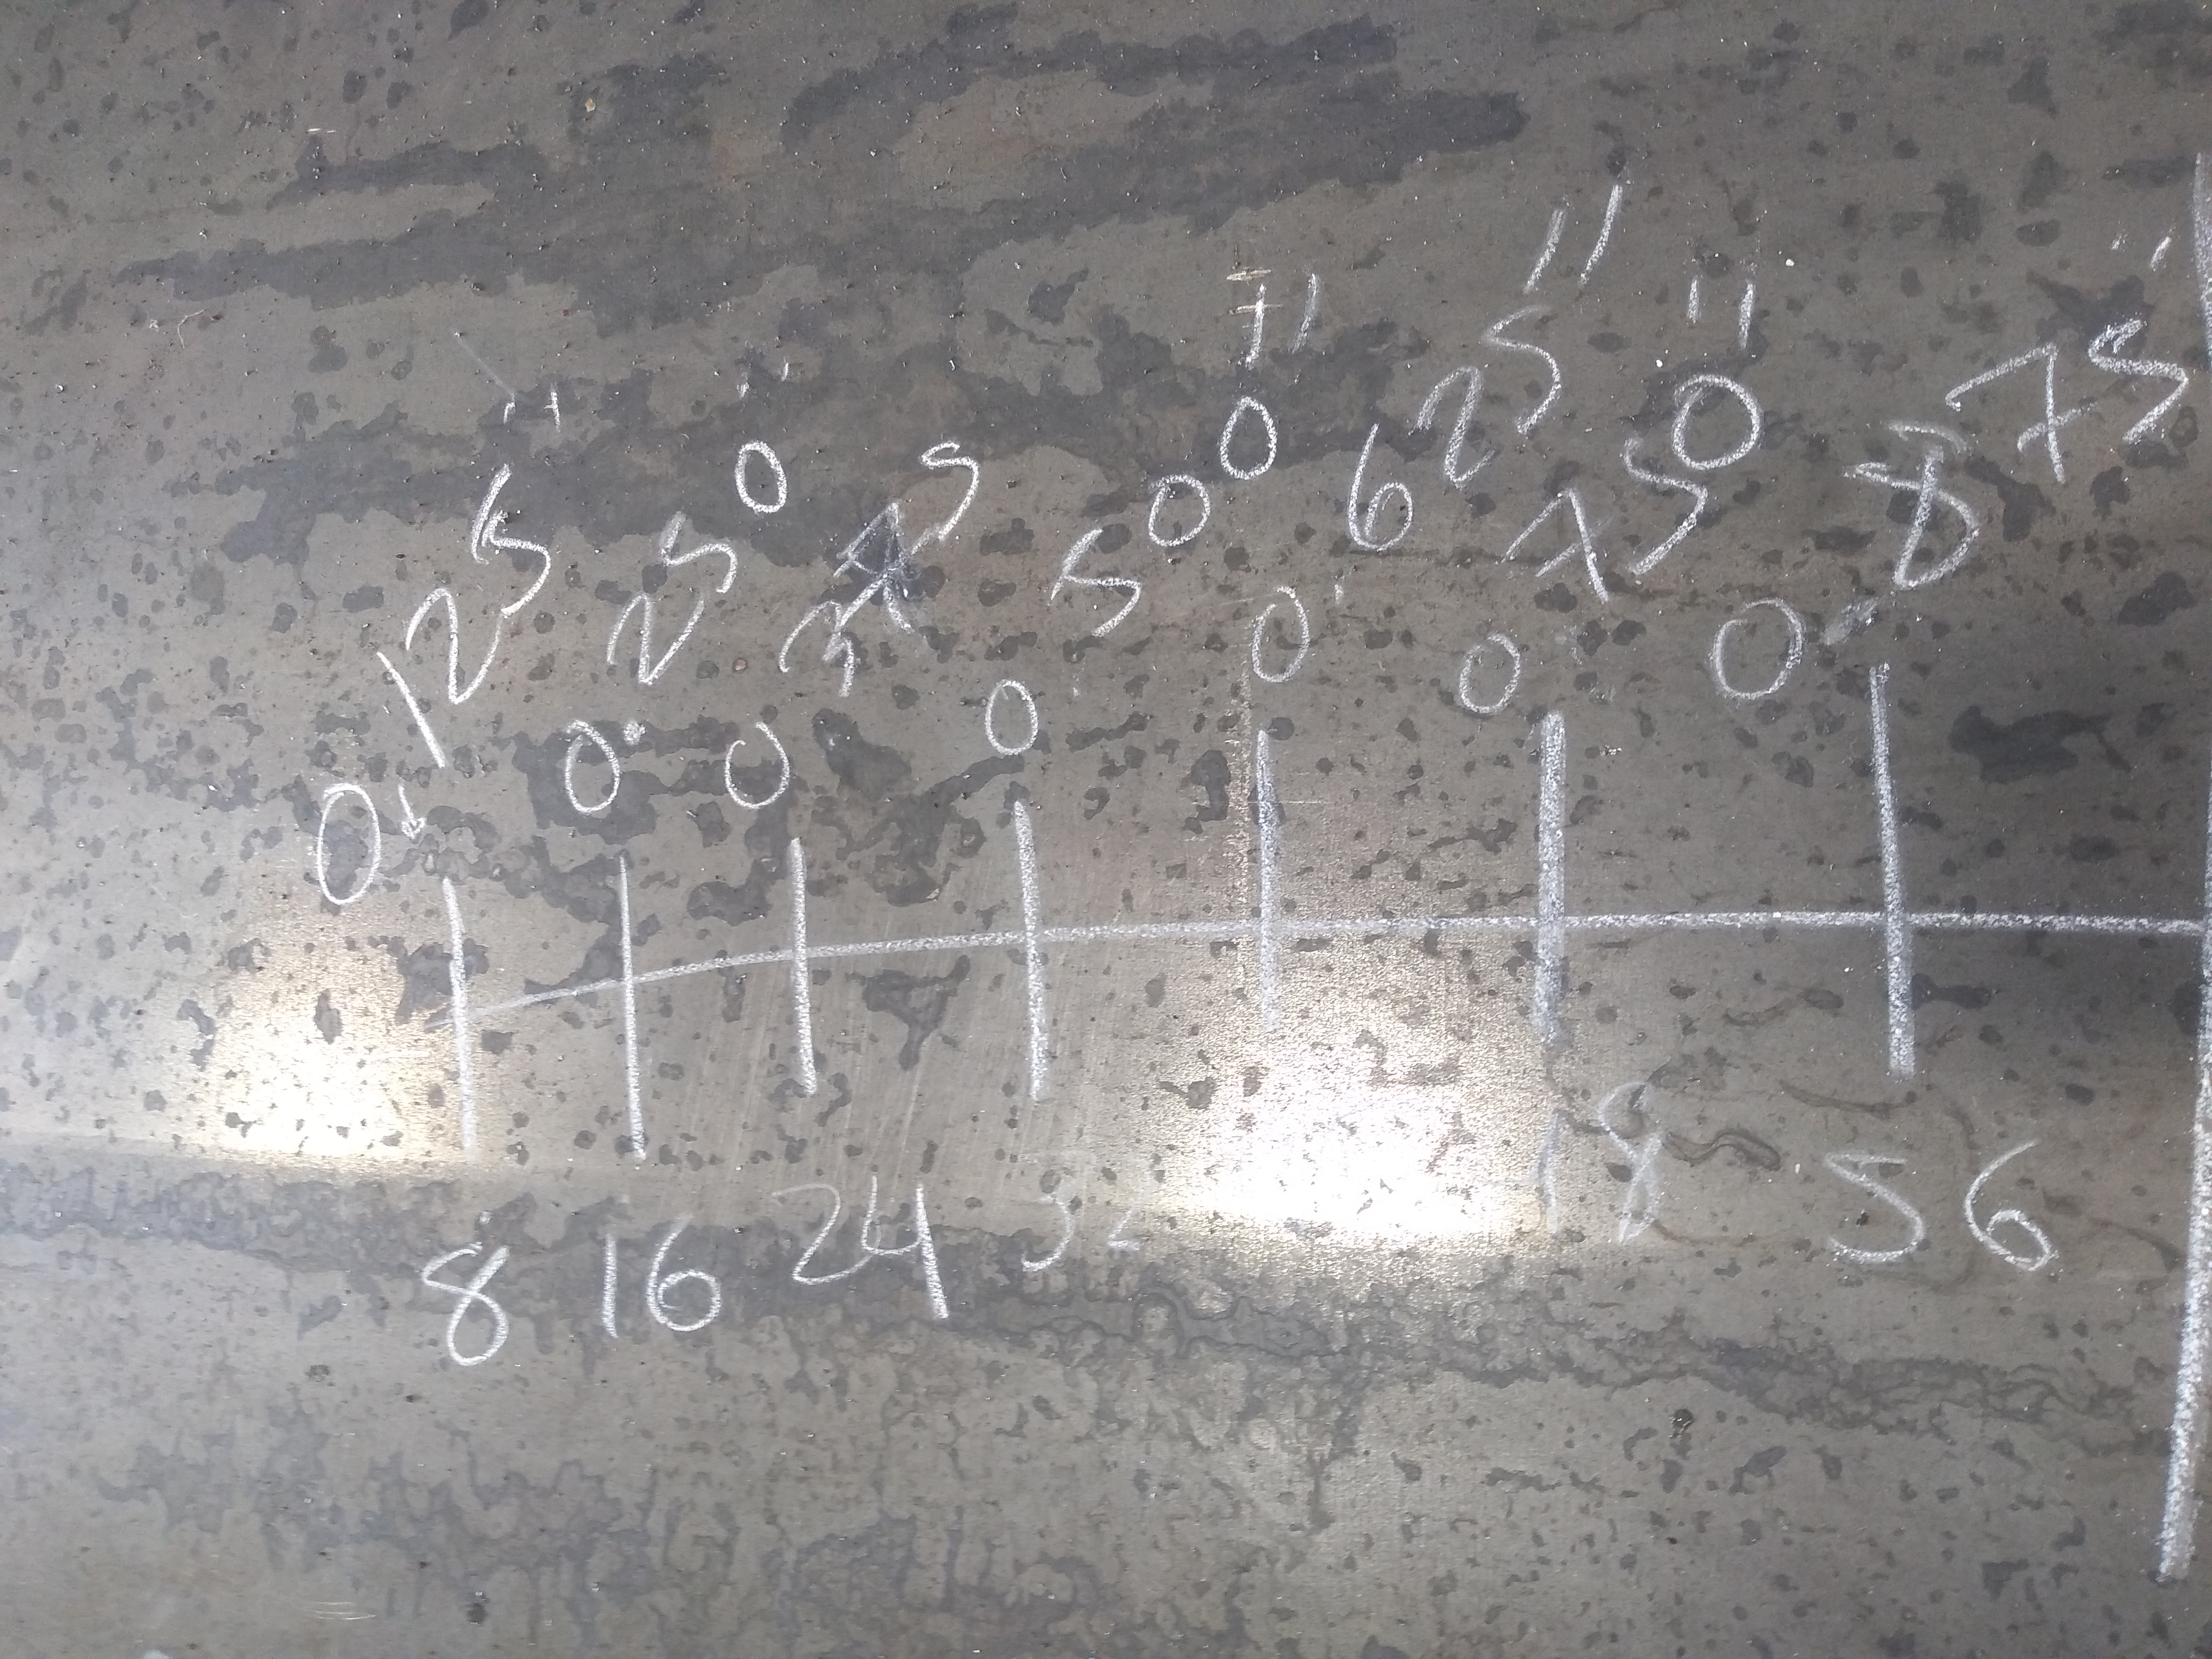 0.125" 0.250" 0.375 0.500" 0.625" 0.750" 0.875"
8 16 24 32 18 56